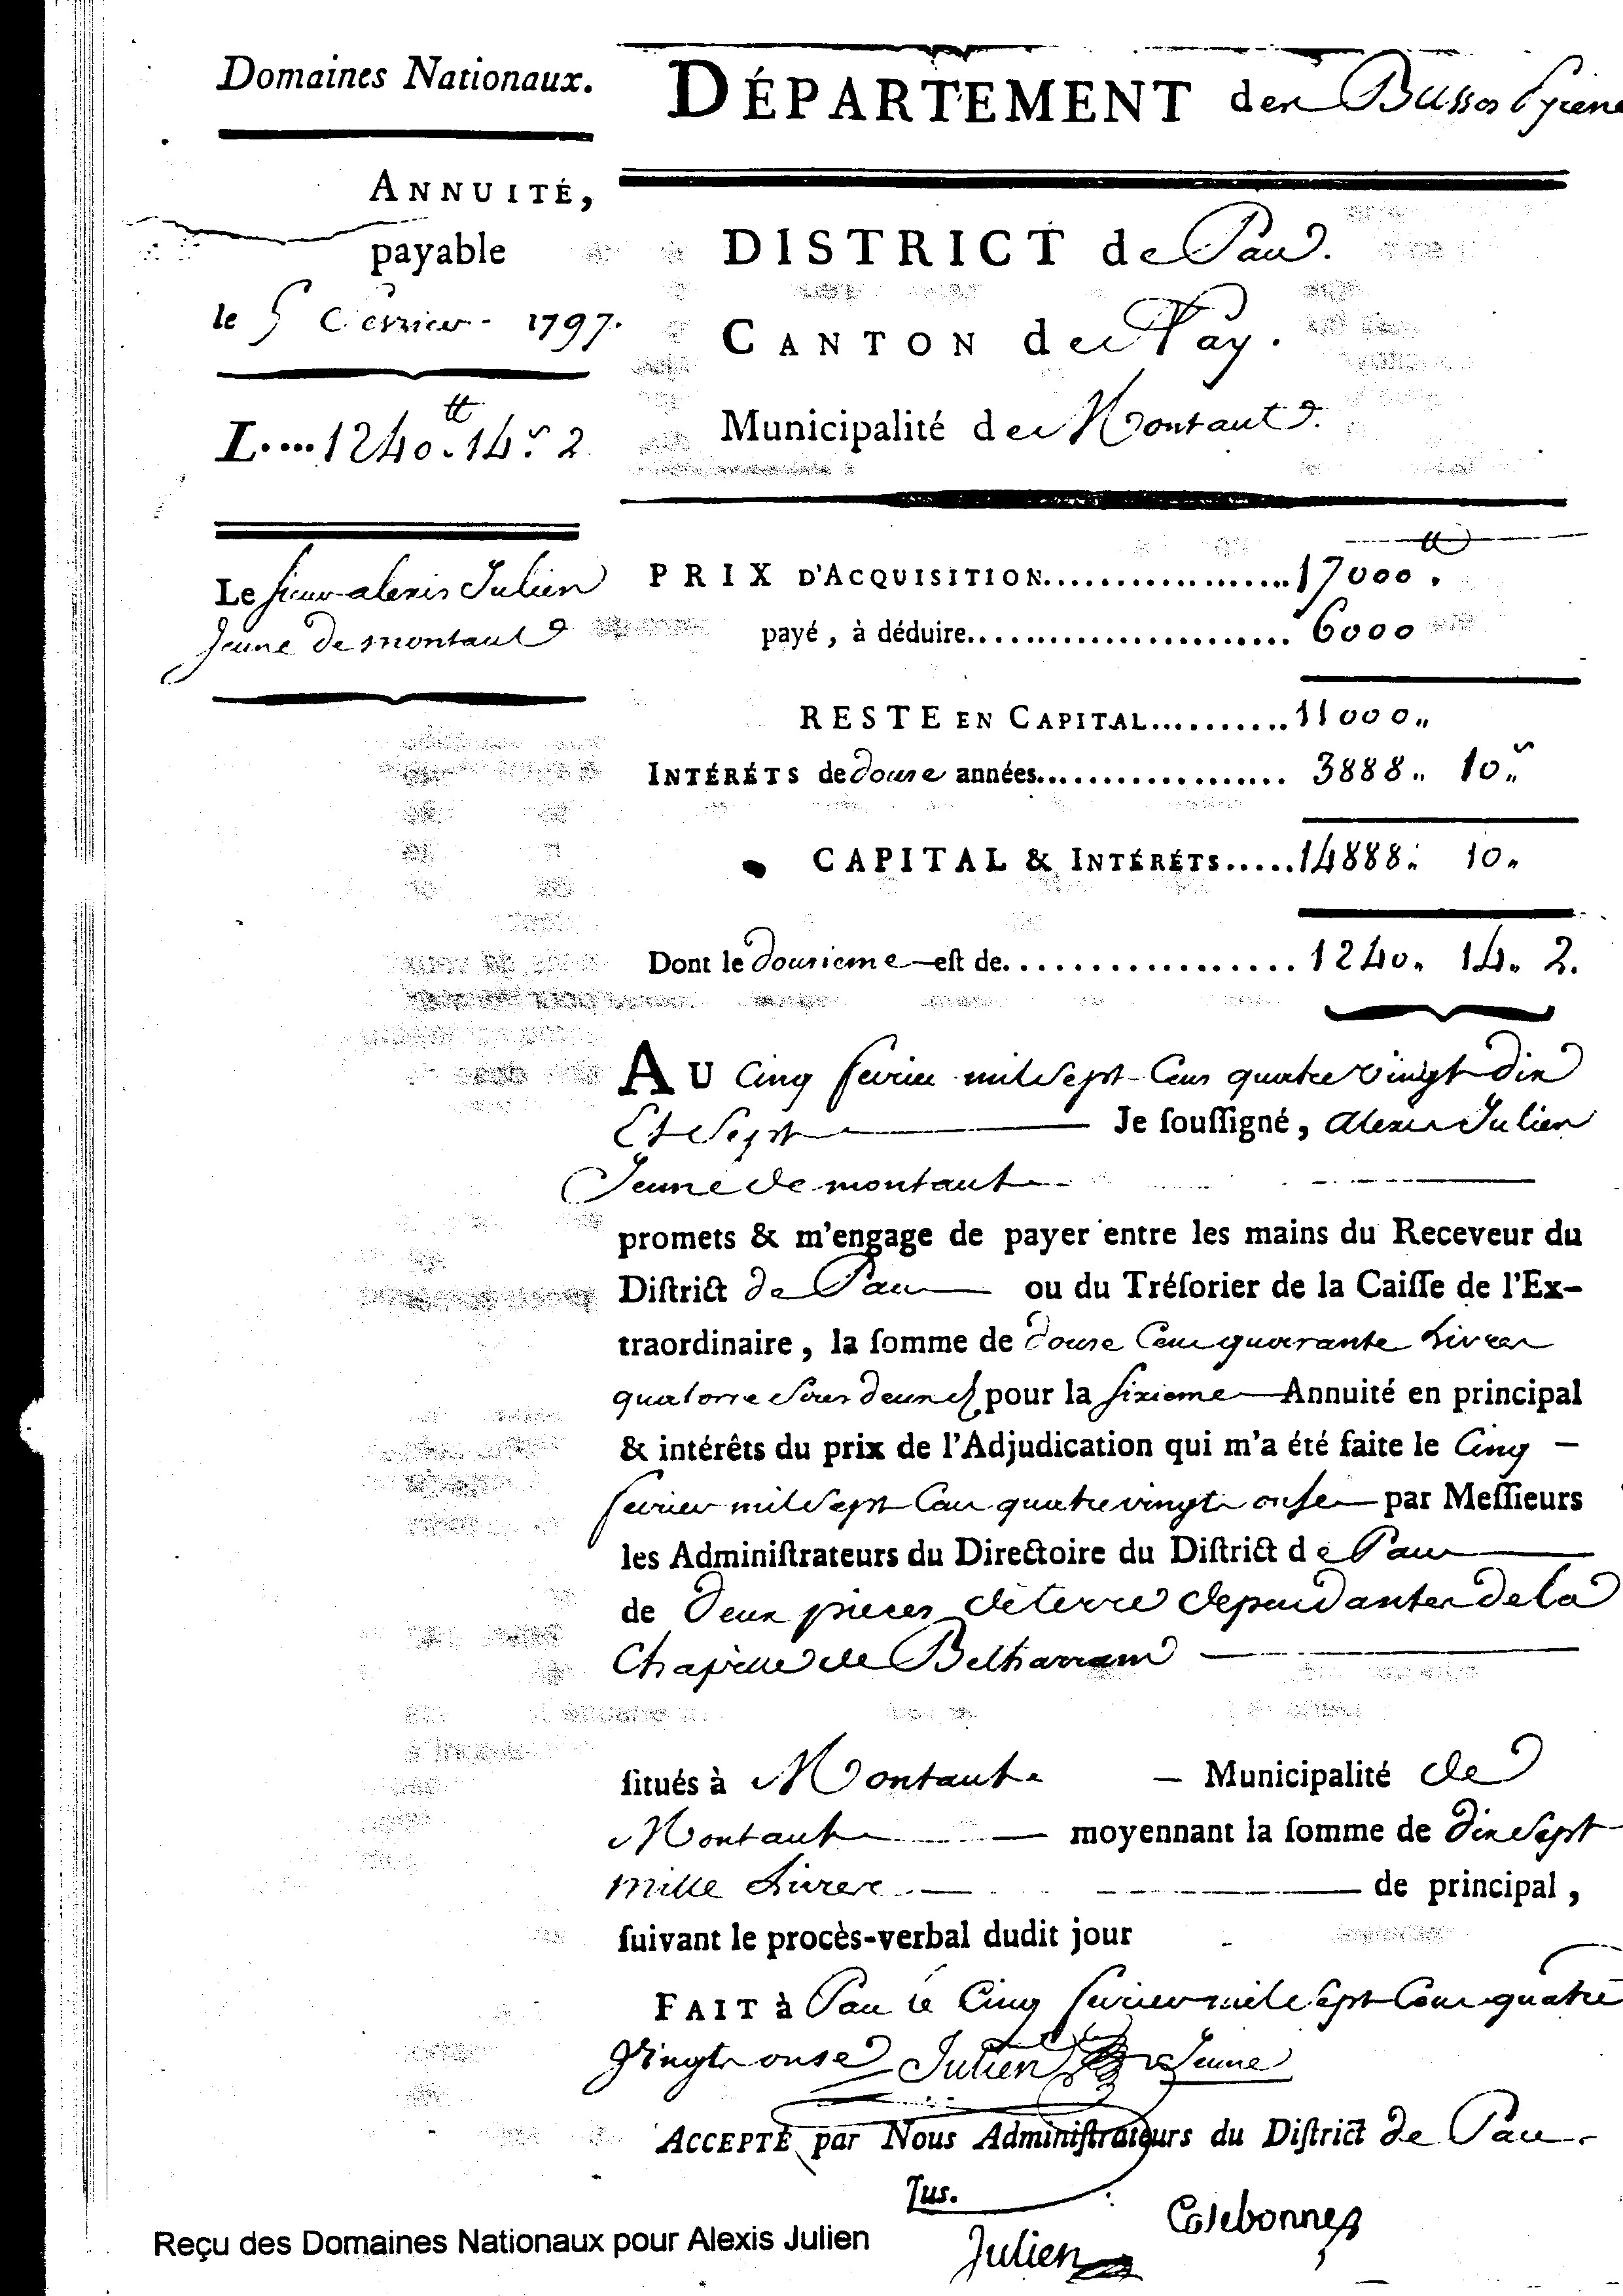 Domaines Nationaux.
DÉPARTEMENT der Basses Pyrene
ANNUITÉ,
payable
le 5 fevrier 1797.
L....1240.tt 14.s 2.
DISTRICT de Pau.
CANTON de Nay.
Municipalité de Montaut.
Le sieur alexis Julien
Jeune de montaut
PRIX D'ACQUISITION.................... 17000.tt
payé, à déduire........................ 6000
RESTE EN CAPITAL.......... 11000"
INTÉRÉTS de douse années................. 3888" 10s"
CAPITAL & INTÉRÉTS.....14888: 10"
Dont le dousieme est de.................. 1240. 14. 2.
AU Cinq fevrier mil sept Cens quatre vingt dix
Et Sept Je ſouſſigné, alexis Julien
Jeune de montaut
promets & m'engage de payer entre les mains du Receveur du
Diſtrict de Pau ou du Tréſorier de la Caiſſe de l'Ex-
traordinaire, la ſomme de douse Cens quarante Livres
quatorse Sous deux d pour la sixieme Annuité en principal
& intérêts du prix de l'Adjudication qui m'a été faite le Cinq -
fevrier mil sept Cens quatre vingt onse par Meſſieurs
les Adminiſtrateurs du Directoire du Diſtrict de Pau
de Deux pieces de terre dependantes de la
Chapelle de Betharram
ſitués à Montaut - Municipalité de
Montaut moyennant la ſomme de dix Sept
mille Livres de principal,
ſuivant le procès-verbal dudit jour
FAIT à Pau le Cinq fevrier mil sept Cens quatre
Vingt onse Julien Jeune
ACCEPTÉ par Nous Adminiſtrateurs du Diſtrict de Pau.
Julien
Reçu des Domaines Nationaux pour Alexis Julien